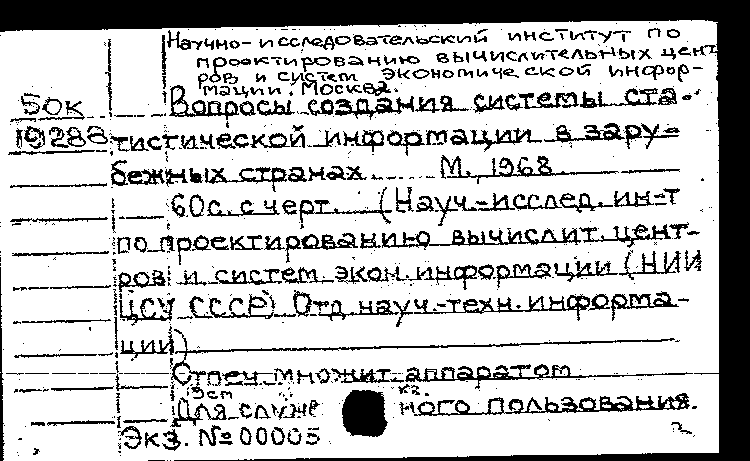 Научно-исследовательский институт по
проектированию вычислительных цент
ров и систем экономической инфор-
мации. Москва.
50к
19288
Вопросы создания системы ста-
тистической информации в зару-
бежных странах. М., 1968.
60с. с черт. (Науч.-исслед. ин-т
по проектированию вычислит. цент-
ров и систем экон. информации (НИИ
ЦСУ СССР) Отд науч.-техн. информа-
ции)
Отпеч множит аппаратом
Для служе ного пользования.
Экз. №00005